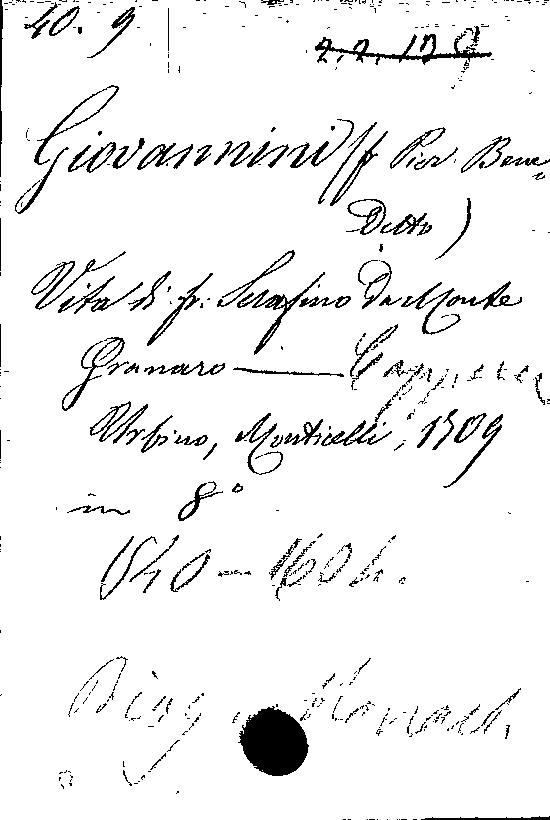 40. 9
2.2.179
Giovannini (f Pier Bene=
Detto)
Vita di fr: Serafino Da Monte
Granaro —
Urbino, Monticelli, 1709
in 8°
1540 – 1604.
Biog. Monast.